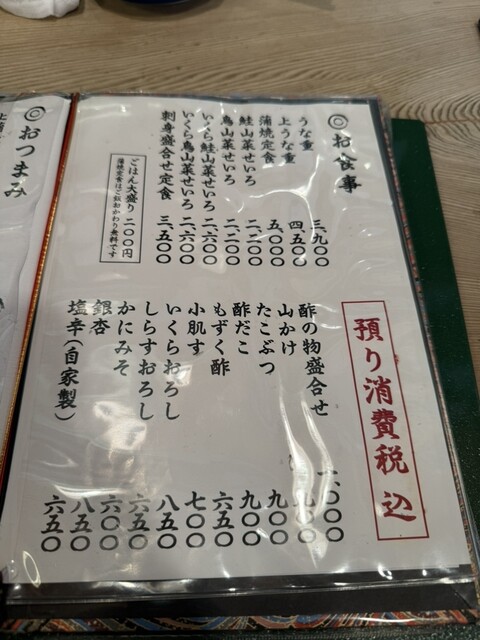 お食事
うな重 三、九〇〇
上うな重 四、五〇〇
蒲焼定食 五、〇〇〇
鮭山菜せいろ 二、二〇〇
鳥山菜せいろ 二、二〇〇
いくら鮭山菜せいろ 二、六〇〇
いくら鳥山菜せいろ 二、六〇〇
刺身盛合せ定食 三、五〇〇
ごはん大盛り 二〇〇円
蒲焼定食はご飯おかわり無料です
預り消費税込
酢の物盛合せ 一、〇〇〇
山かけ 九〇〇
たこぶつ 九〇〇
酢だこ 九〇〇
もずく酢 六五〇
小肌す 七〇〇
いくらおろし 八五〇
しらすおろし 六五〇
かにみそ 六〇〇
銀杏 八五〇
塩辛(自家製) 六五〇
おつまみ